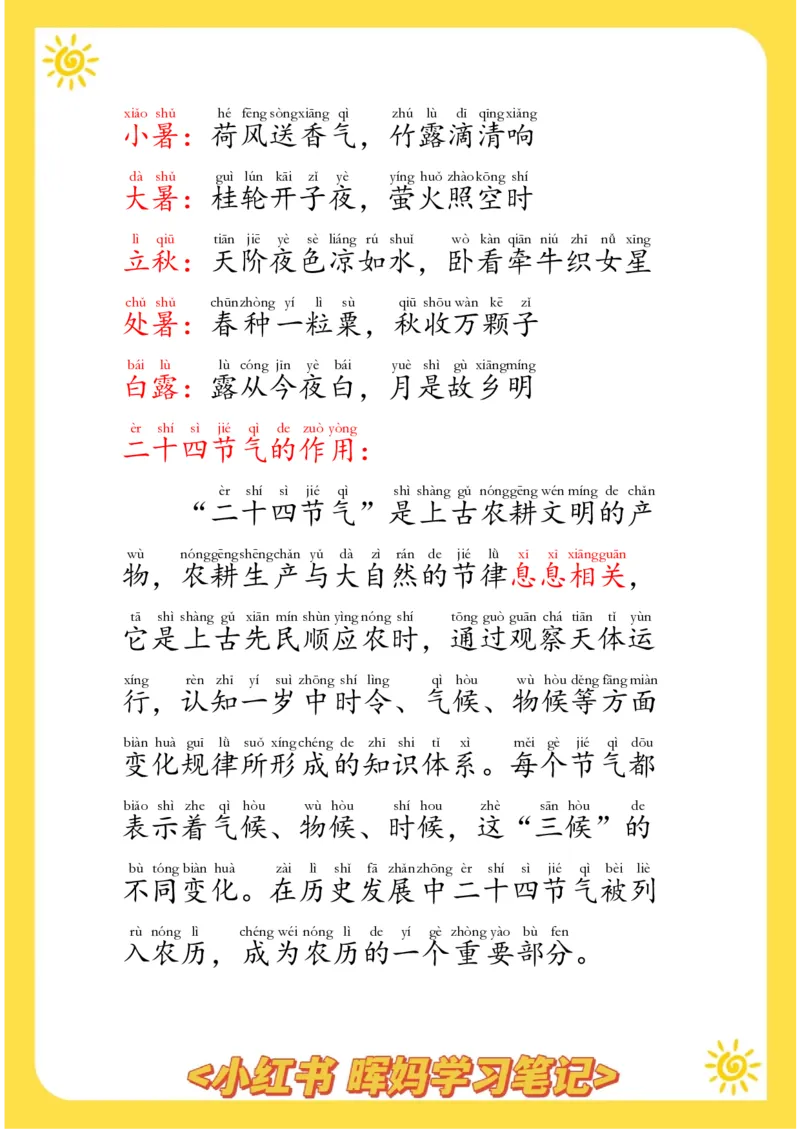 xiǎo shǔ hé fēng sòng xiāng qì zhú lù dī qīng xiǎng
小暑：荷风送香气，竹露滴清响
dà shǔ guì lún kāi zǐ yè yíng huǒ zhào kōng shí
大暑：桂轮开子夜，萤火照空时
lì qiū tiān jiē yè sè liáng rú shuǐ wò kàn qiān niú zhī nǚ xīng
立秋：天阶夜色凉如水，卧看牵牛织女星
chǔ shǔ chūn zhòng yí lì sù qiū shōu wàn kē zǐ
处暑：春种一粒粟，秋收万颗子
bái lù lù cóng jīn yè bái yuè shì gù xiāng míng
白露：露从今夜白，月是故乡明
èr shí sì jié qì de zuò yòng
二十四节气的作用：
èr shí sì jié qì shì shàng gǔ nóng gēng wén míng de chǎn
“二十四节气”是上古农耕文明的产
wù nóng gēng shēng chǎn yǔ dà zì rán de jié lǜ xī xī xiāng guān
物，农耕生产与大自然的节律息息相关，
tā shì shàng gǔ xiān mín shùn yìng nóng shí tōng guò guān chá tiān tǐ yùn
它是上古先民顺应农时，通过观察天体运
xíng rèn zhī yí suì zhōng shí lìng qì hòu wù hòu děng fāng miàn
行，认知一岁中时令、气候、物候等方面
biàn huà guī lǜ suǒ xíng chéng de zhī shi tǐ xì měi gè jié qì dōu
变化规律所形成的知识体系。每个节气都
biǎo shì zhe qì hòu wù hòu shí hou zhè sān hòu de
表示着气候、物候、时候，这“三候”的
bù tóng biàn huà zài lì shǐ fā zhǎn zhōng èr shí sì jié qì bèi liè
不同变化。在历史发展中二十四节气被列
rù nóng lì chéng wéi nóng lì de yí gè zhòng yào bù fen
入农历，成为农历的一个重要部分。
<小红书 晖妈学习笔记>